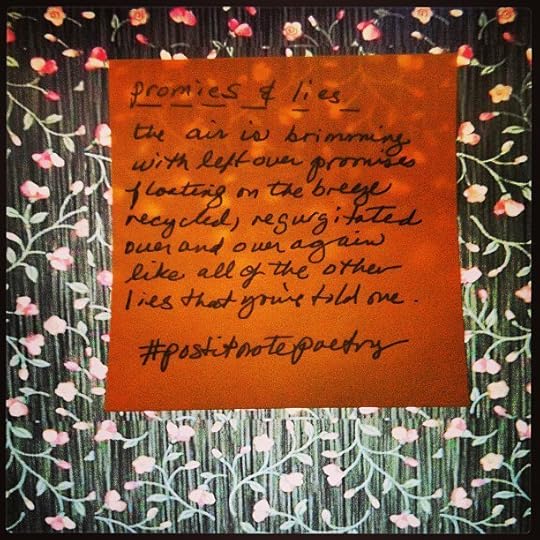 promies & lies
the air is brimming
with left over promises
floating on the breeze
recycled, regurgitated
over and over again
like all of the other
lies that you've told me.
#postitnotepoetry